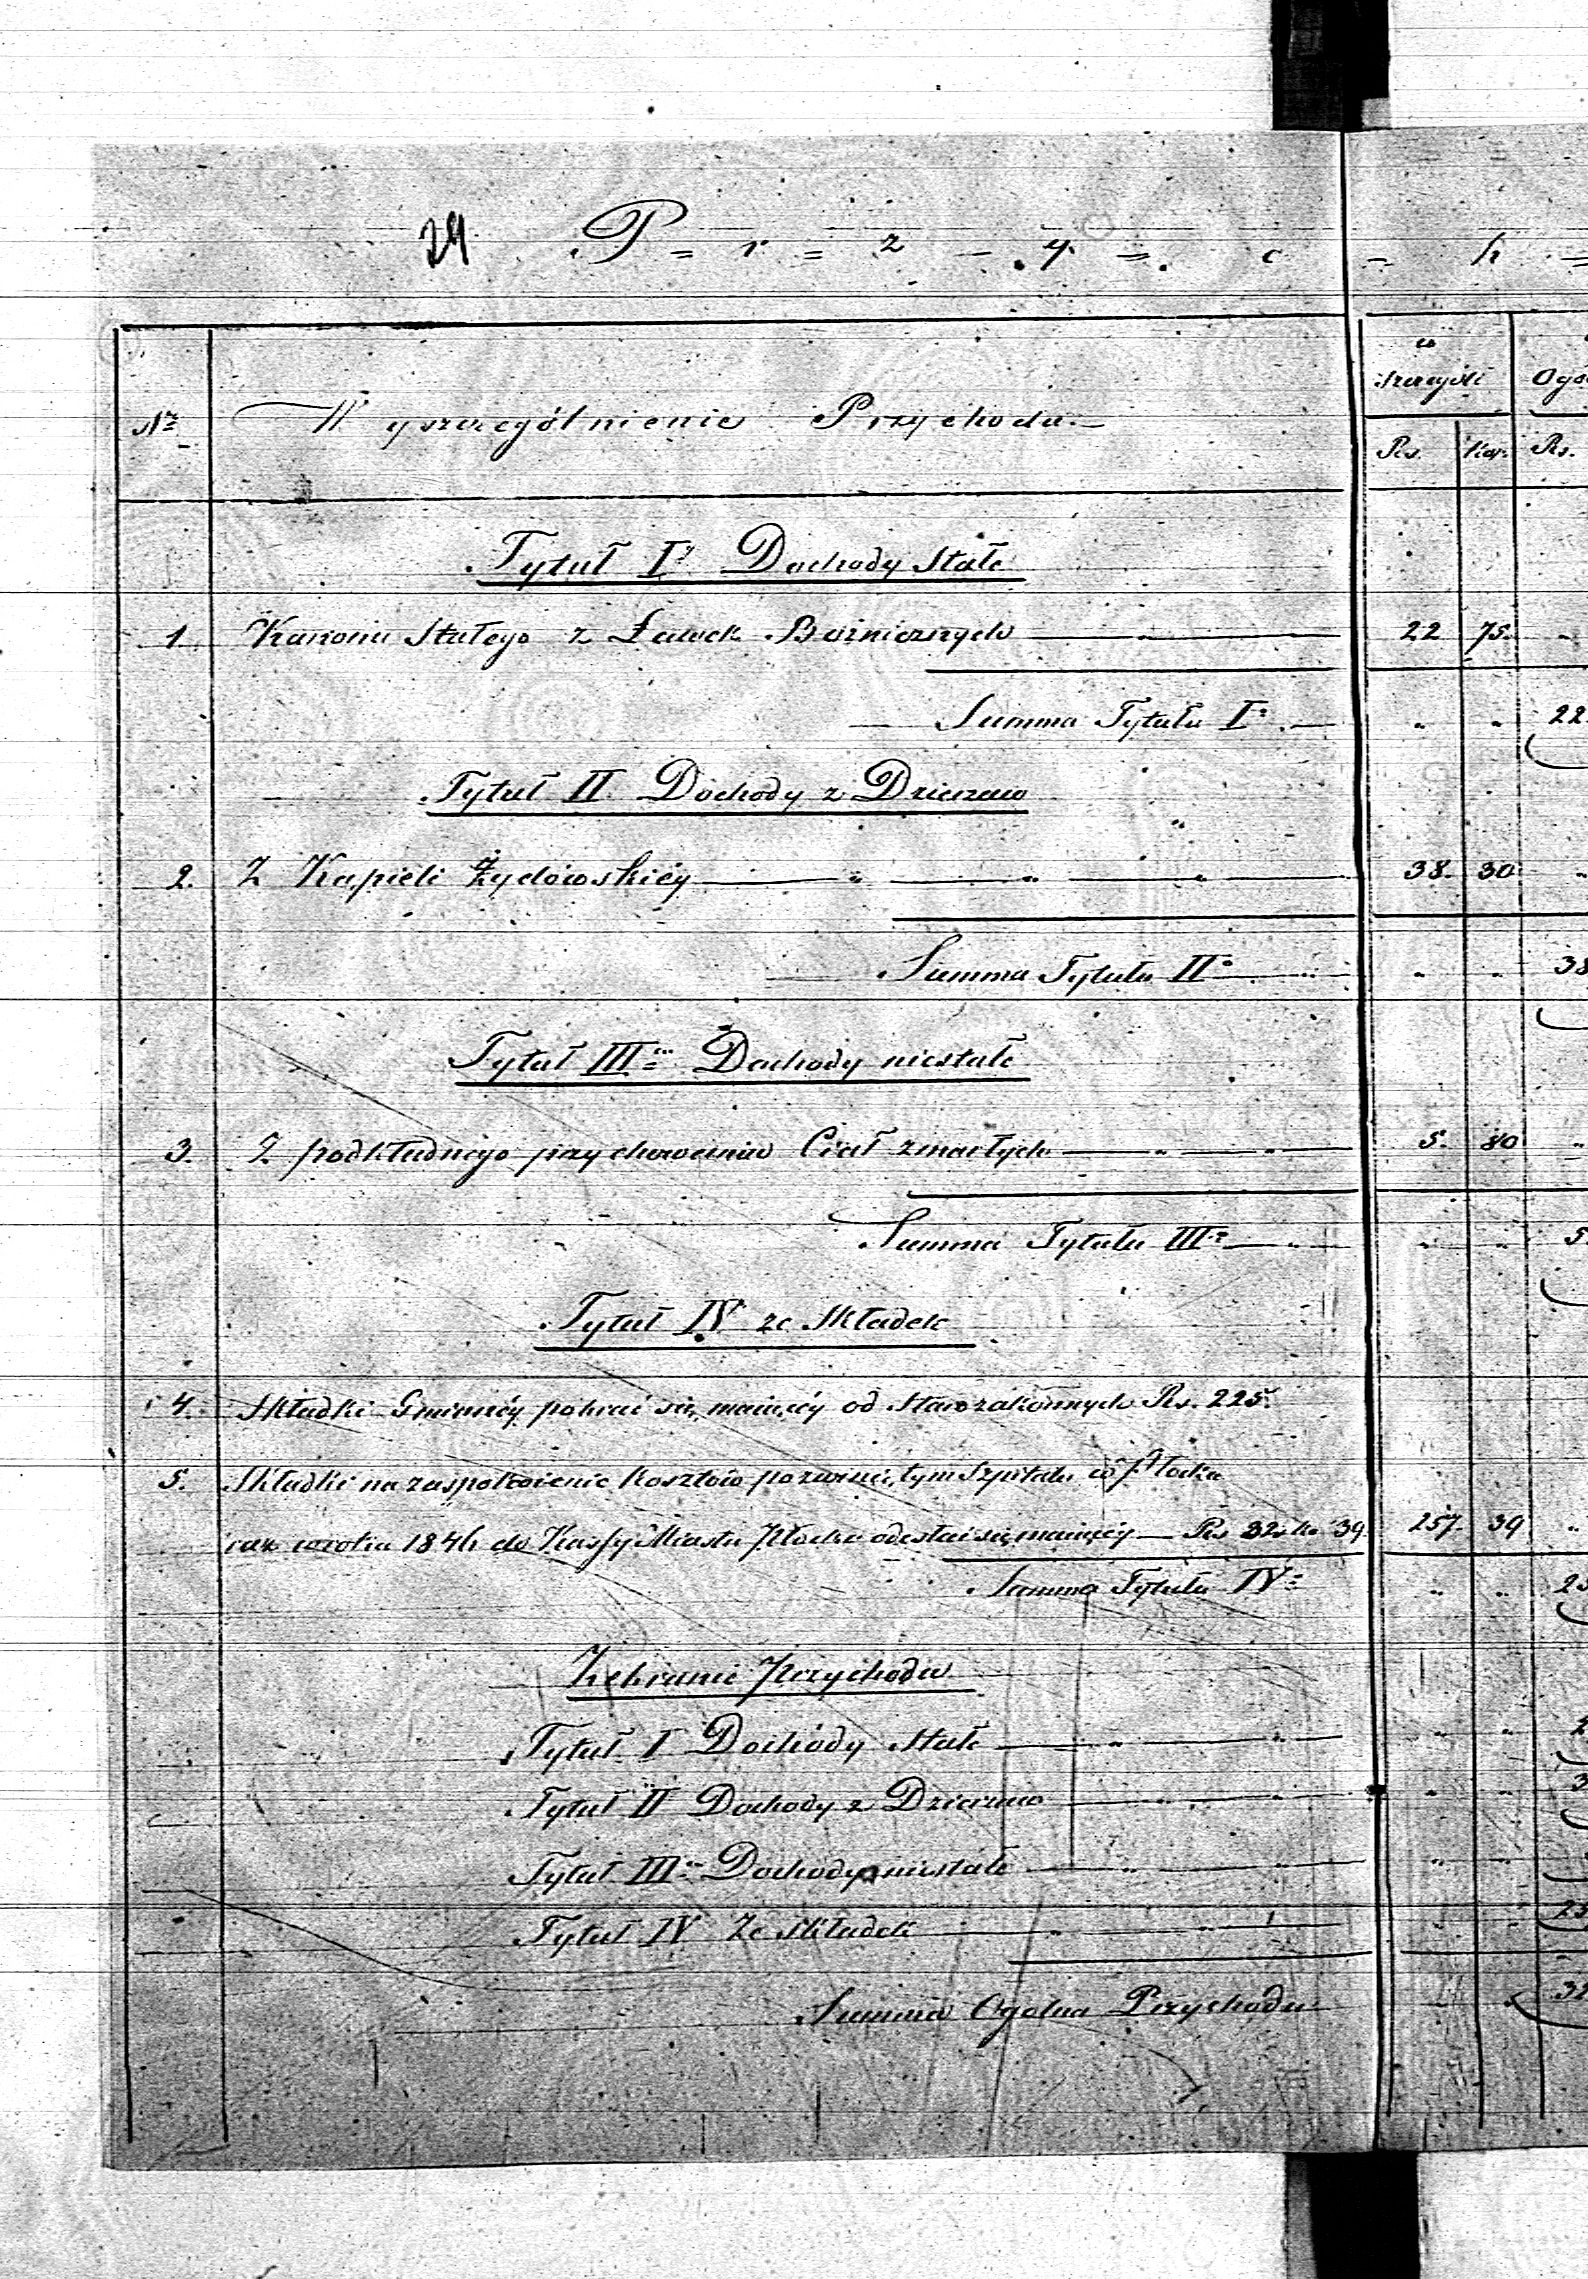 24 P = r = z = y = c = h =
w Szczególe Ogó
Nr Wyszczególnienie Przychodu
Rs. Kop. Rs.
Tytuł I Dochody Stałe
1. Kanonu Stałego z Ławek Bożnicznych 22 75.
Summa Tytułu I 22
Tytuł II Dochody z Dzierzaw
2. Z Kąpieli Żydowskiéy 38. 30
Summa Tytułu II 38
Tytuł III Dochody niestałe
3. Z pokładnego przy chowaniu Ciał zmarłych 5. 80
Summa Tytułu III 5
Tytuł IV ze Składek
4. Składki Gminnéy pobrać się maiącéy od Starozakonnych Rs. 225.
5. Składki na zaspokoienie kosztów Szpitalu w Płocku
w roku 1846 do Kassy Miasta Płocka odesłać się maiącéy Rs 32 ko 39 257 39
Summa Tytułu IV 25
Zebranie Przychodu
Tytuł I Dochody Stałe 2
Tytuł II Dochody z Dzierzaw 3
Tytuł III Dochody niestałe
Tytuł IV Ze Składek 25
Summa Ogolna Przychodu 32